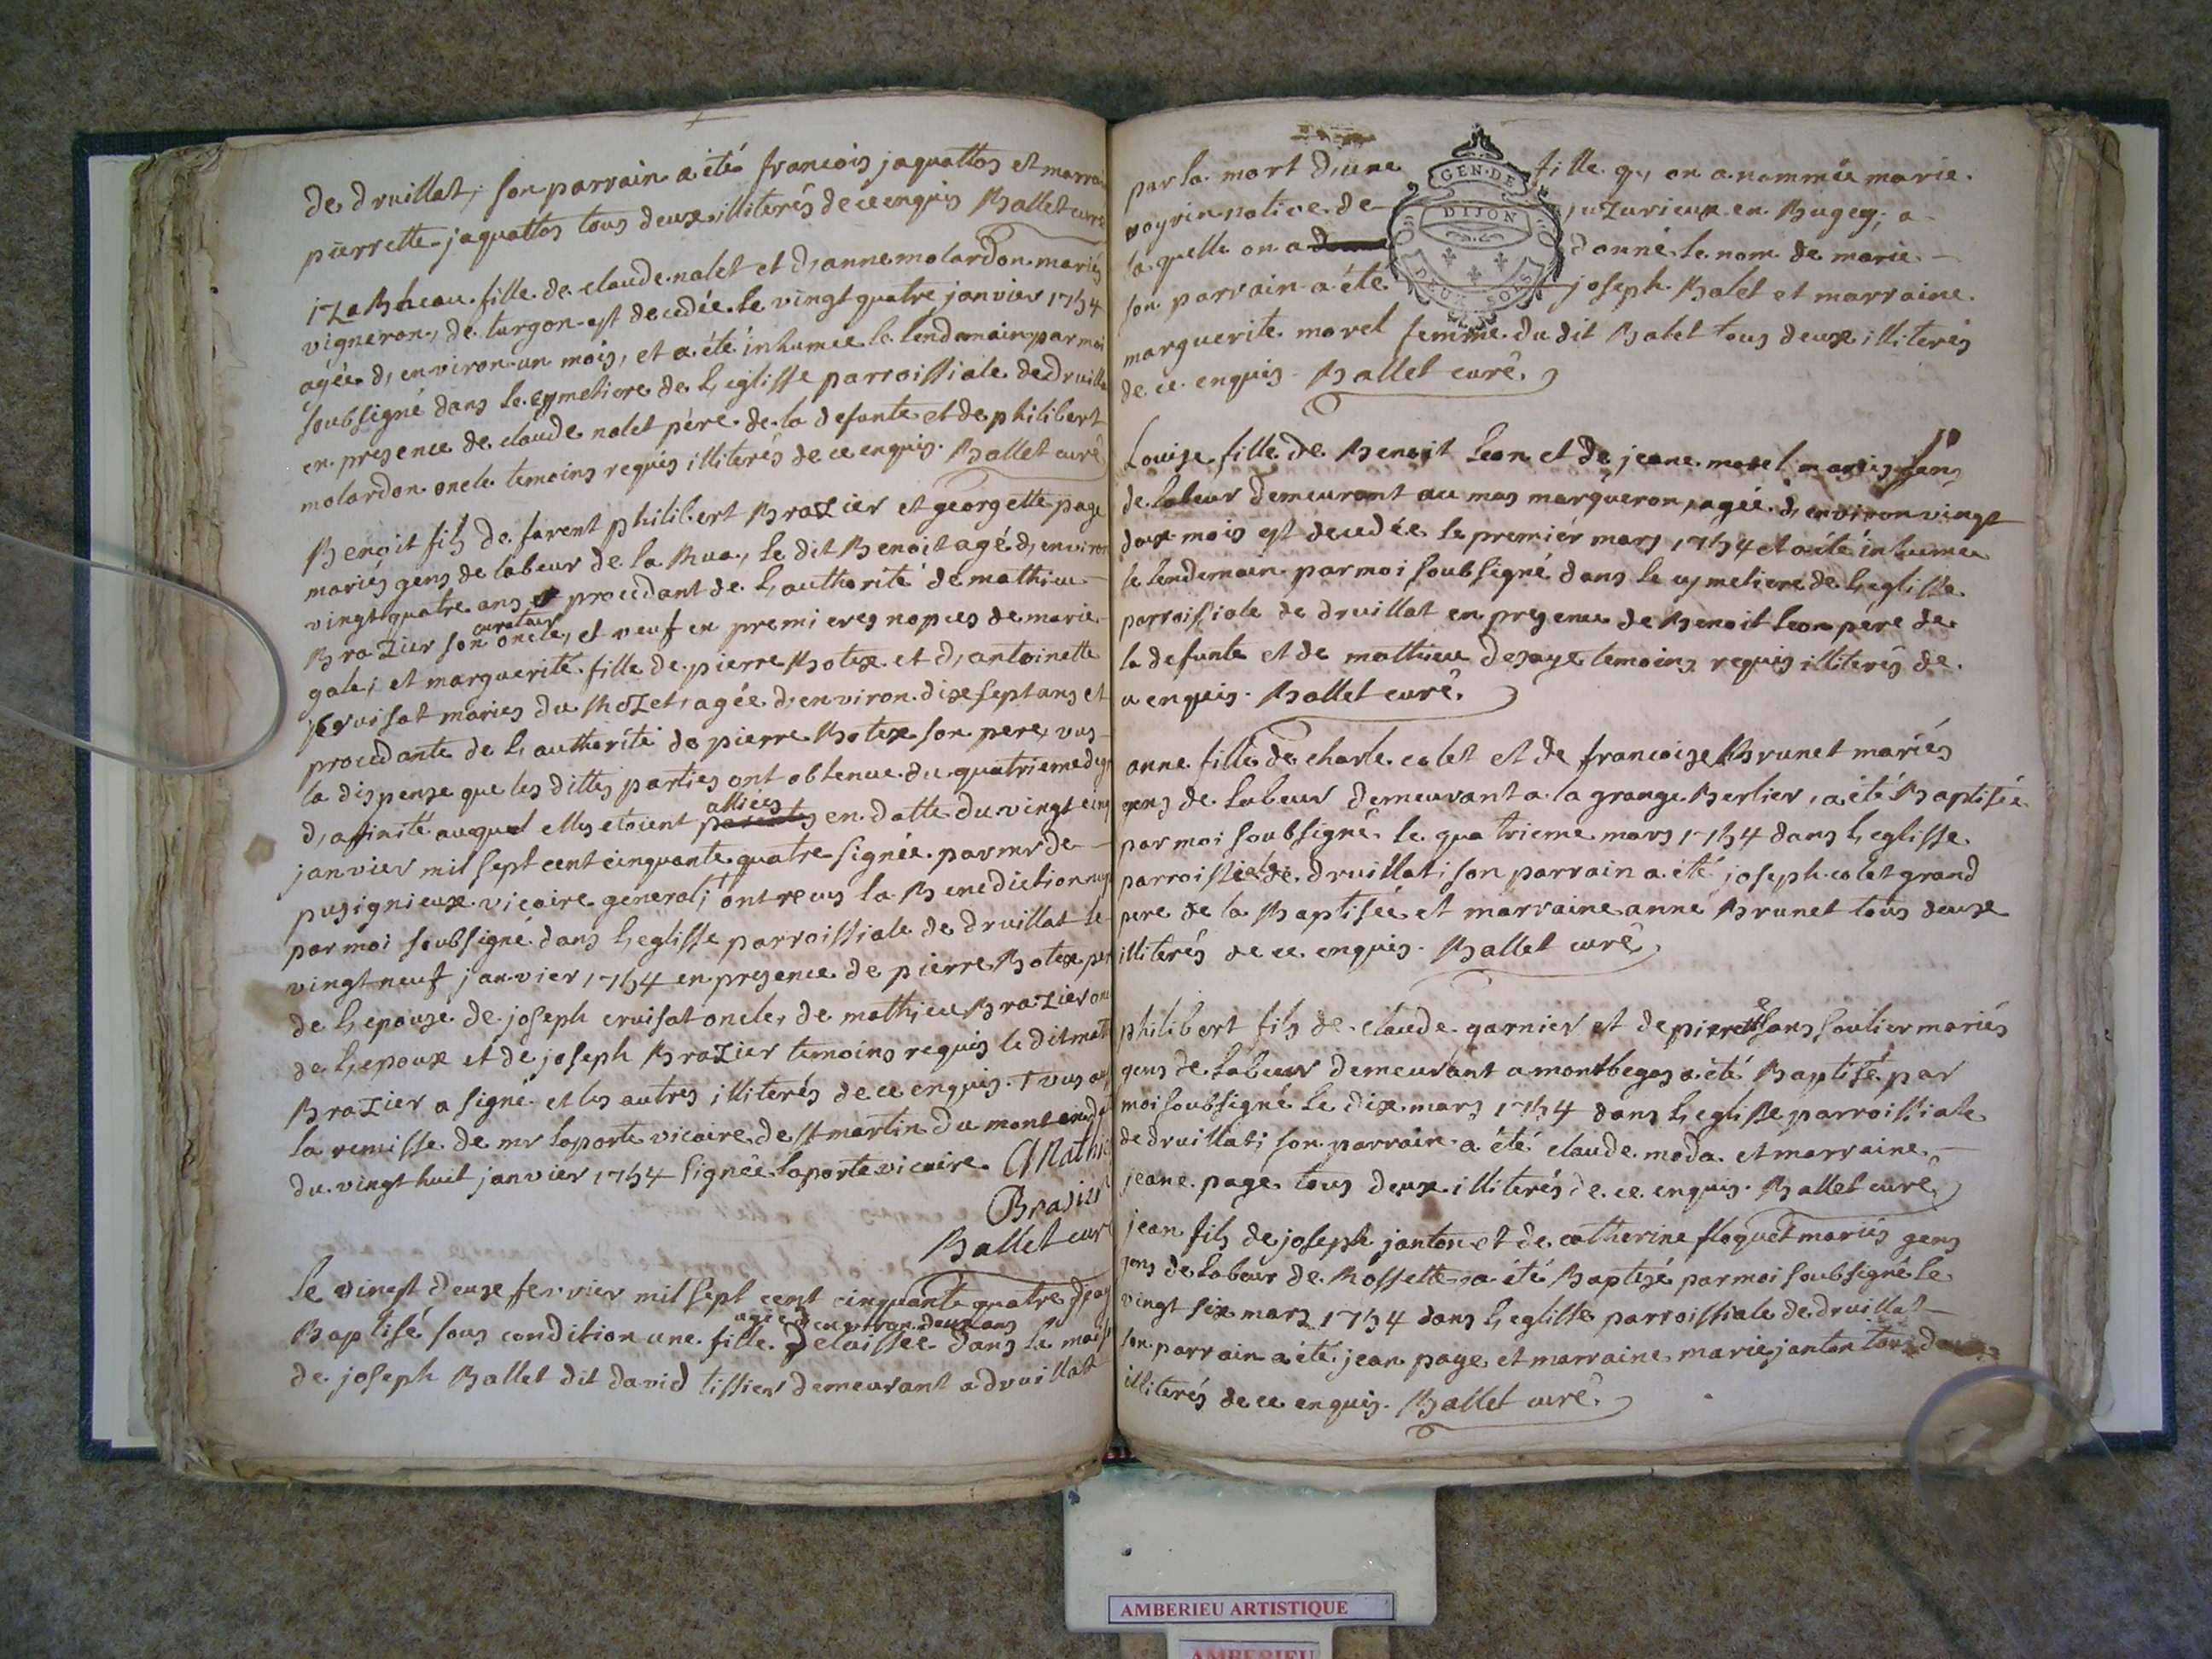 de druillat, son parrain a été francois jaquattos et marra
pierrette jaquattos tous deux illiterés de ce enquis Ballet curé
izaBheau fille de claude nalet et d, anne molardon mariés
vigneron, de turgon est decedée le vingt quatre janvier 1754
agée d, environ un mois, et a été inhumee le lendemain par moi
soubsigné dans le cymetiere de L, eglisse parroissiale de druilla
en presence de claude nalet père de la defunte et de philibert
molardon oncle temoins requis illiterés de ce enquis. Ballet curé
Benoit fils de favent philibert BraZier et georgette page
mariés gens de labeur de la Rua, le dit Benoit agé d, environ
vingt quatre ans procedant de L, authorité de mathieu
curateur
BraZier son oncle, et veuf en premieres nopces de marie
gale, et marguerite fille de pierre Botex et d, antoinette
cruisat mariés du MoZet, agée d, environ dixsept ans et
procedante de L, authorité de pierre Botex son pere, vus
la dispense que les dittes parties ont obtenue du quatrieme deg
alliées
d, afinité auquel elles etoient parentes en datte du vingt cinq
janvier mil sept cent cinquante quatre signée par mr de
pusignieux vicaire general, † ont reçus la Benediction nup
par moi soubsigné dans L, eglisse parroissiale de druillat le
vingt neuf janvier 1754 en presence de pierre Botex per
de L, epouse de joseph cruisat oncle, de mathieu BraZier on
de L, epoux et de joseph BraZier temoins requis le dit mat
BraZier a signé et les autres illiterés de ce enquis. † vus au
la remisse de mr laporte vicaire de st martin du mont en d
du vingt huit janvier 1754 signée laporte vicaire Mathi
Brasier
Ballet cur
Le vingt deux fevrier mil sept cent cinquante quatre j'ay
agée d'environ deux ans
Baptisé sous condition une fille delaissée dans la mais
de joseph Ballet dit david tissier demeurant a druillat
GEN·DE
DIJON
DEUX SOLS
par la mort d, une fille qu, on a nommée marie
voyrin native de juZurieux en Bugey, a
laquelle on a donné le nom de marie
son parrain a été joseph Balet et marraine
marguerite morel femme du dit Balet tous deux illiterés
de ce enquis. Ballet curé.
Louise fille de Benoit Leon et de jeane morel mariés gens
de labeur demeurant au mas margueron, agée d, environ vingt
deux mois est decedée le premier mars 1754 et a été inhumée
le lendemain par moi soubsigné dans le cymetiere de L, eglisse
parroissiale de druillat en presence de Benoit Leon père de
la defunte et de mathieu desaye temoins requis illiterés de
ce enquis. Ballet curé.
anne fille de charle colet et de francoise Brunet mariés
gens de labeur demeurant a la grange Berlier, a été Baptisée
par moi soubsigné le quatrieme mars 1754 dans L, eglisse
parroissiale de druillat, son parrain a été joseph colet grand
pere de la Baptisée et marraine anne Brunet tous deux
illiterés de ce enquis. Ballet curé
philibert fils de claude garnier et de pierrette sans soulier mariés
gens de labeur demeurant a montbegos a été Baptisé par
moi soubsigné le dix mars 1754 dans L, eglisse parroissiale
de druillat, son parrain a été claude moda et marraine
jeane page tous deux illiterés de ce enquis. Ballet curé
jean fils de joseph janton et de catherine floquet mariés gens
gens de labeur de Rossette a été Baptisé par moi soubsigné le
vingt six mars 1754 dans L, eglisse parroissiale de druillat
son parrain a été jean page et marraine marie janton tous deux
illiterés de ce enquis. Ballet curé.
AMBERIEU ARTISTIQUE
AMBERIEU